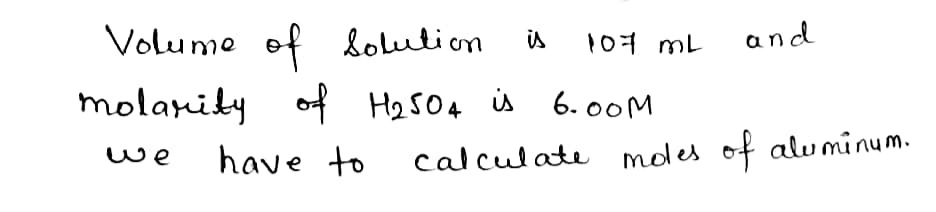 Volume of Solution is 107 mL and
molarity of H2SO4 is 6.00M
we have to calculate moles of aluminum.